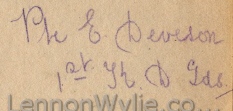 Pte E. Deveson
1st K. D. Gds.
LennonWylie.co